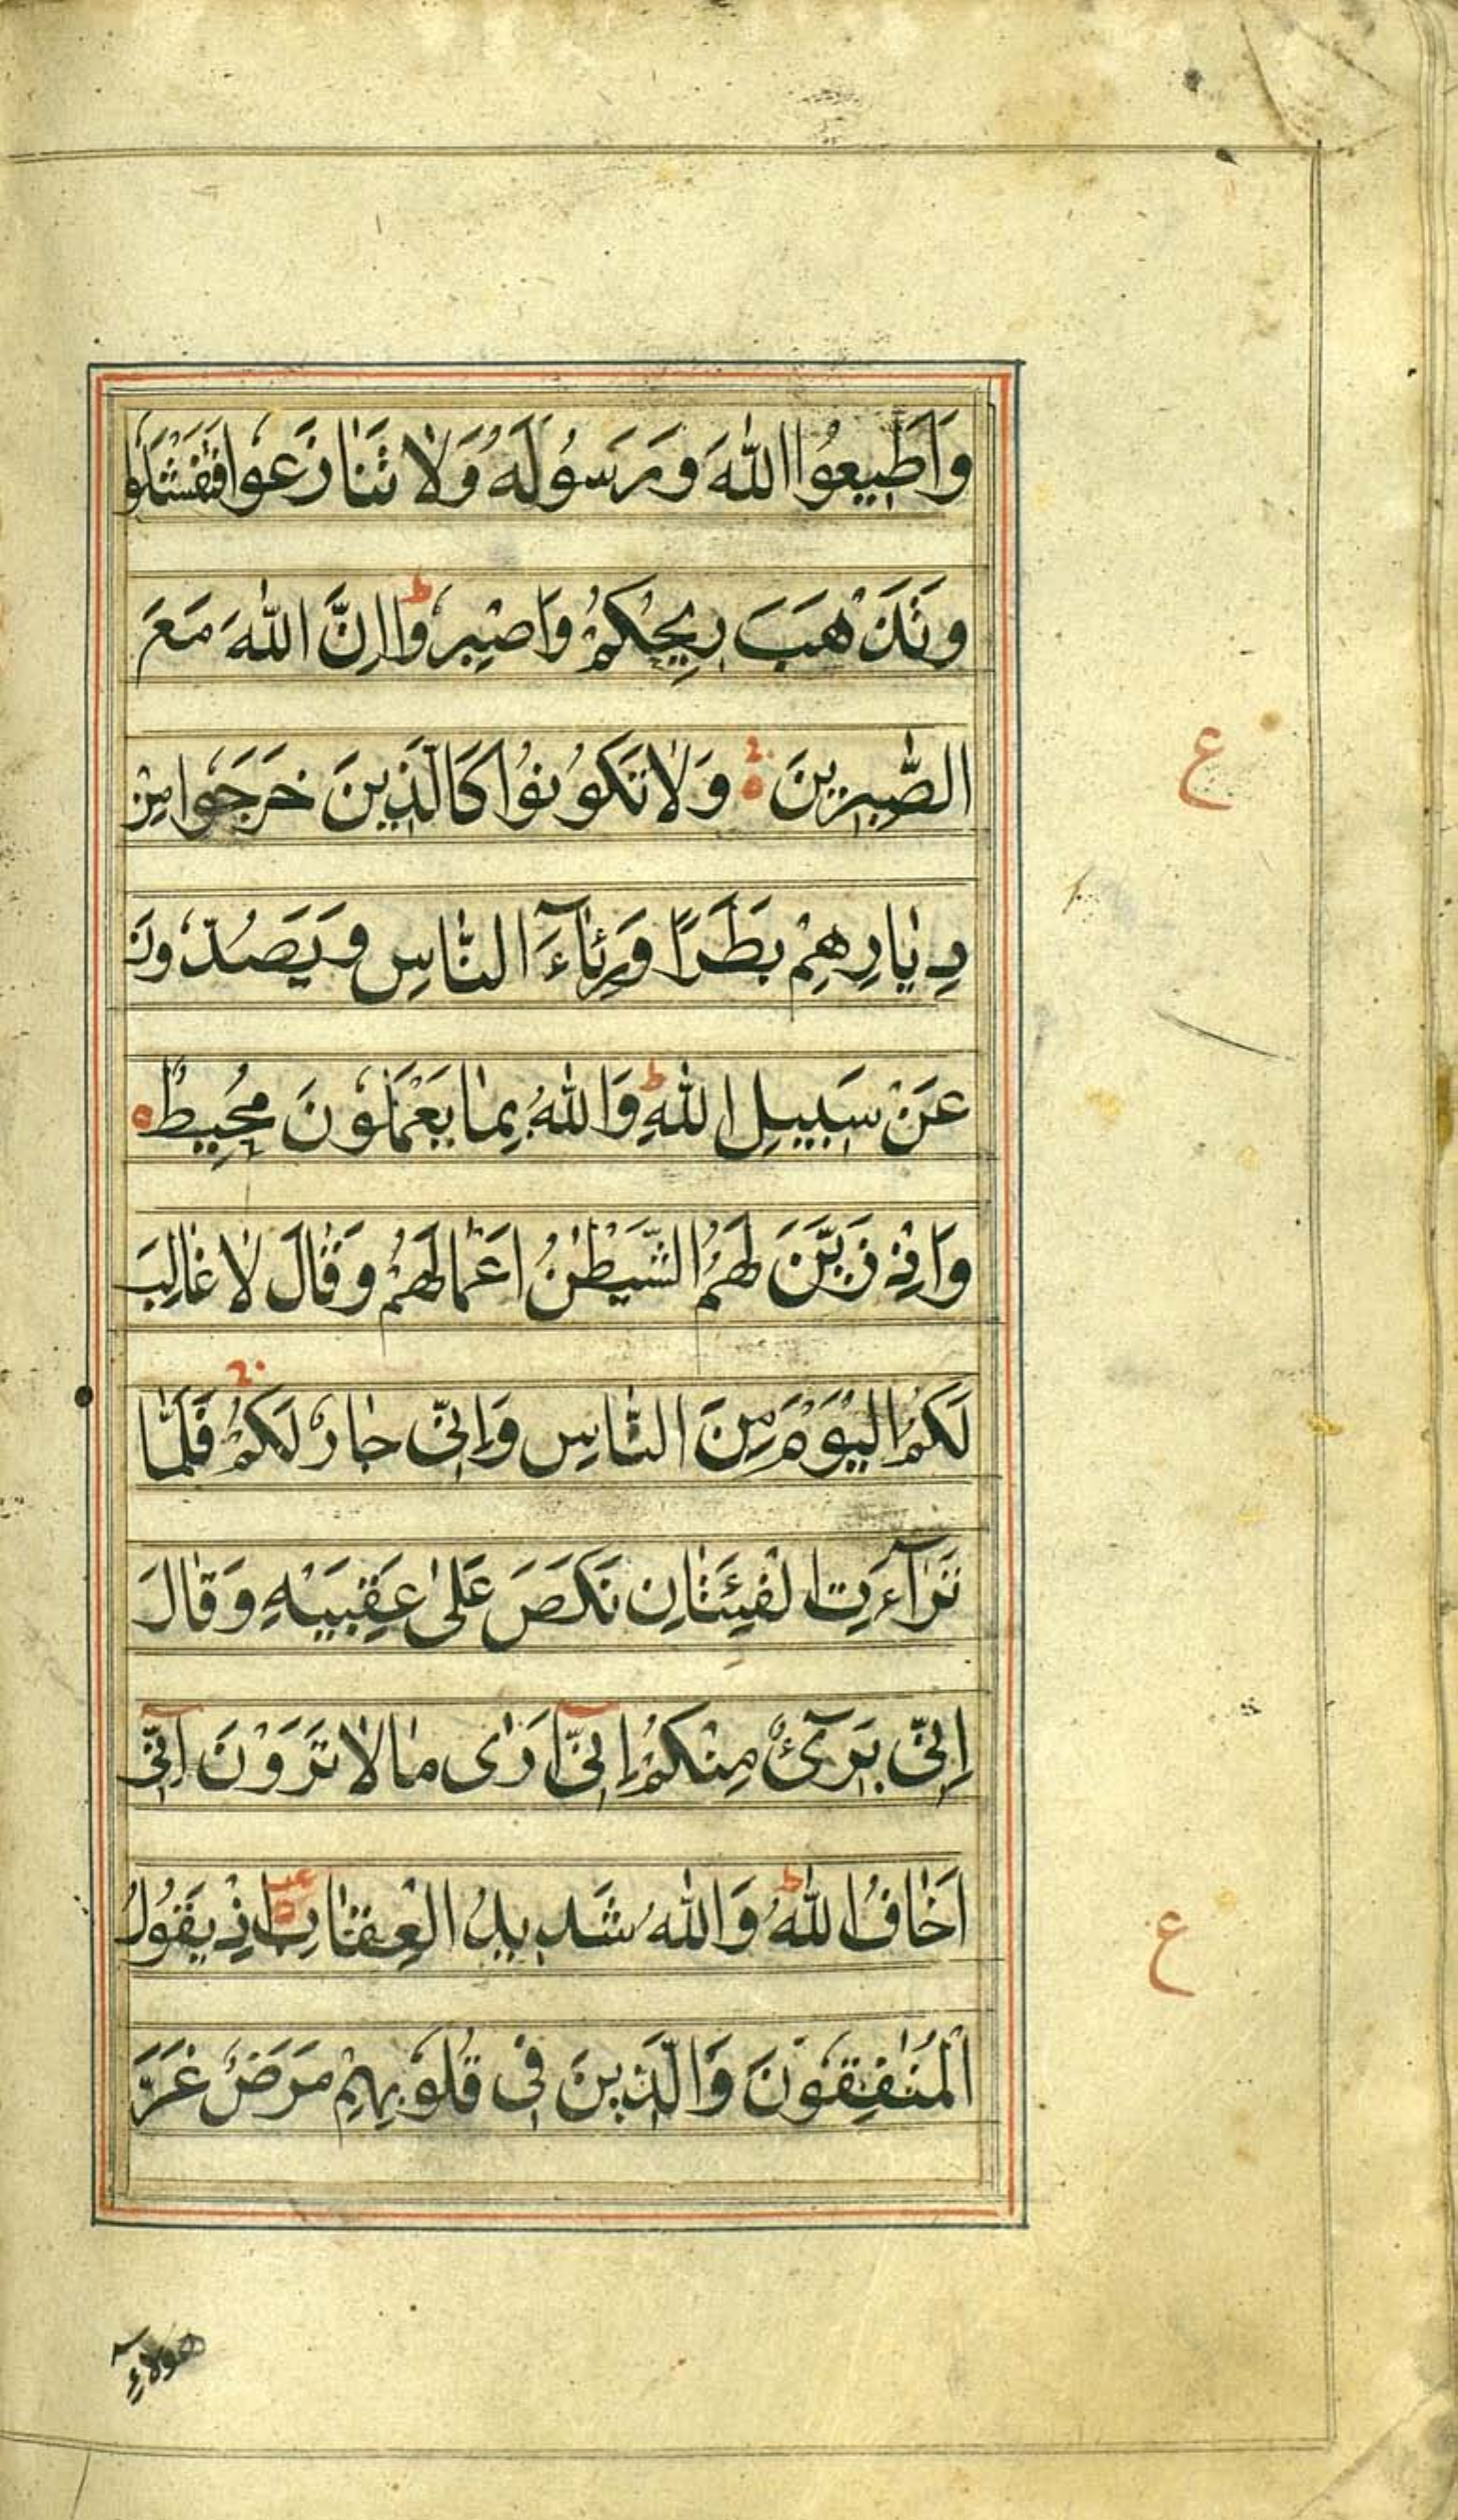 وَاَطِيعُوا اللهَ وَرَسُولَهُ وَلَا تَنَازَعُوا فَتَفْشَلُوا
وَتَذْهَبَ رِيحُكُمْ وَاصْبِرُوا ط اِنَّ اللهَ مَعَ
الصّٰبِرِينَ وَلَا تَكُونُوا كَالَّذِينَ خَرَجُوا مِنْ
دِيَارِهِمْ بَطَرًا وَرِئَآءَ النَّاسِ وَيَصُدُّونَ
عَنْ سَبِيلِ اللهِ ط وَاللهُ بِمَا يَعْمَلُونَ مُحِيطٌ
وَاِذْ زَيَّنَ لَهُمُ الشَّيْطٰنُ اَعْمَالَهُمْ وَقَالَ لَا غَالِبَ
لَكُمُ الْيَوْمَ مِنَ النَّاسِ وَاِنِّي جَارٌ لَكُمْ فَلَمَّا
تَرَآءَتِ الْفِئَتَانِ نَكَصَ عَلٰى عَقِبَيْهِ وَقَالَ
اِنِّي بَرِيٓءٌ مِنْكُمْ اِنِّيٓ اَرٰى مَا لَا تَرَوْنَ اِنِّيٓ
اَخَافُ اللهَ ط وَاللهُ شَدِيدُ الْعِقَابِ اِذْ يَقُولُ
الْمُنٰفِقُونَ وَالَّذِينَ فِي قُلُوبِهِمْ مَرَضٌ غَرَّ
ع
ع
هؤلآء